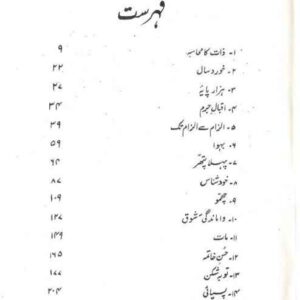 فہرست
۱- ذات کا محاسبہ ۹
۲- خورد سال ۲۲
۳- ہزار پایہ ۲۷
۴- اقبالِ جرم ۳۴
۵- الزام سے الزام تک ۳۹
۶- بہوا ۵۹
۷- پہلا پتھر ۶۴
۸- خود شناس ۸۷
۹- چھمو ۱۰۹
۱۰- واماندگیِ شوق ۱۲۷
۱۱- مات ۱۴۹
۱۲- حسنِ خاتمہ ۱۶۵
۱۳- توبہ شکن ۱۷۷
۱۴- پسپائی ۲۰۴